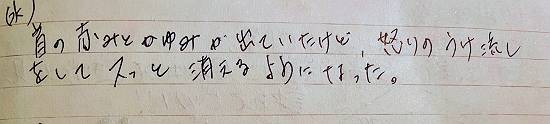 (水)
首の赤みとかゆみが出ていたけど、怒りのうけ流し
をしてスッと消えるようになった。